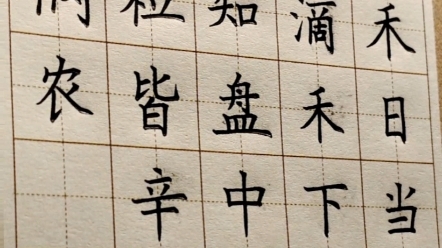 禾日当
滴禾下
知盘中
粒皆辛
悯农